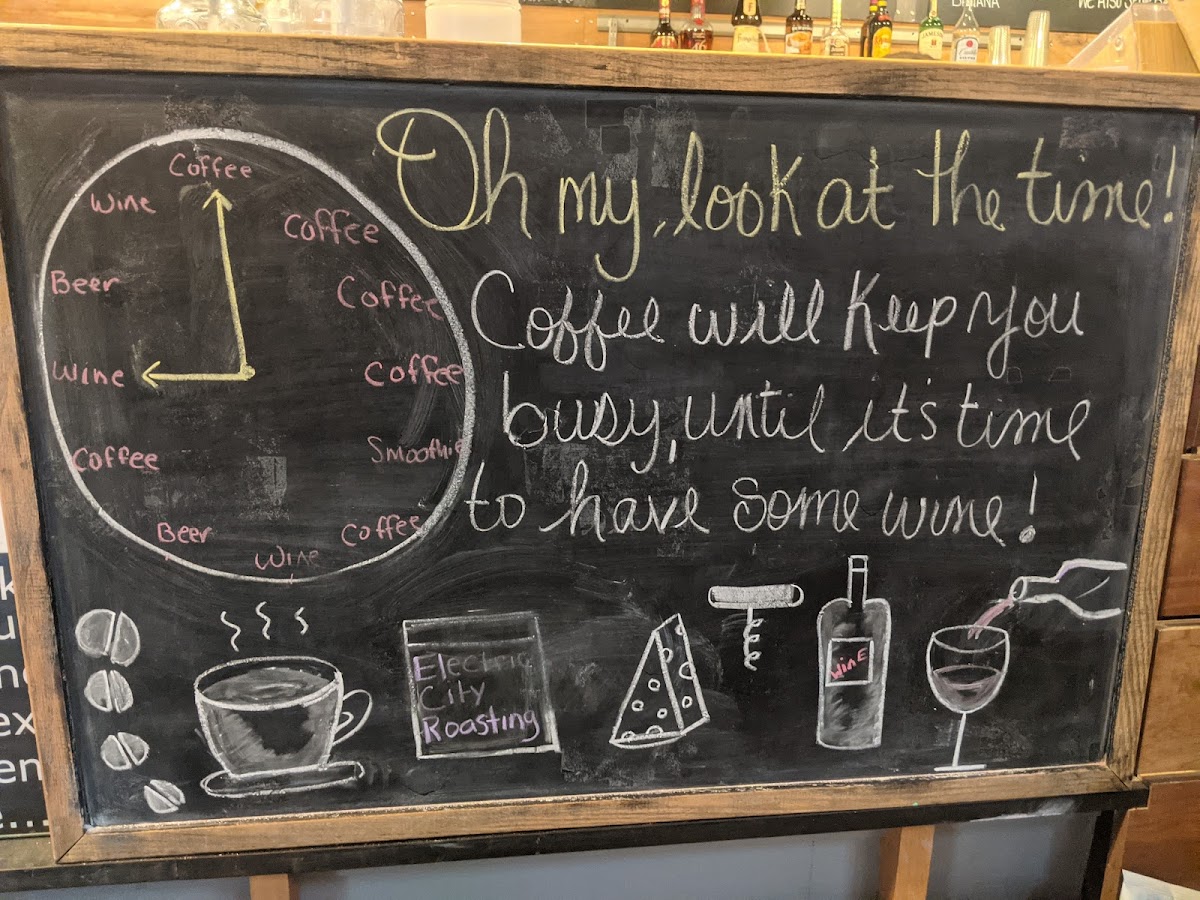 BANANA
Oh my, look at the time!
Coffee will keep you
busy, until it's time
to have some wine!
Coffee
Coffee
Coffee
Coffee
Smoothie
Coffee
Wine
Beer
Coffee
Wine
Beer
Wine
Electric
City
Roasting
Wine